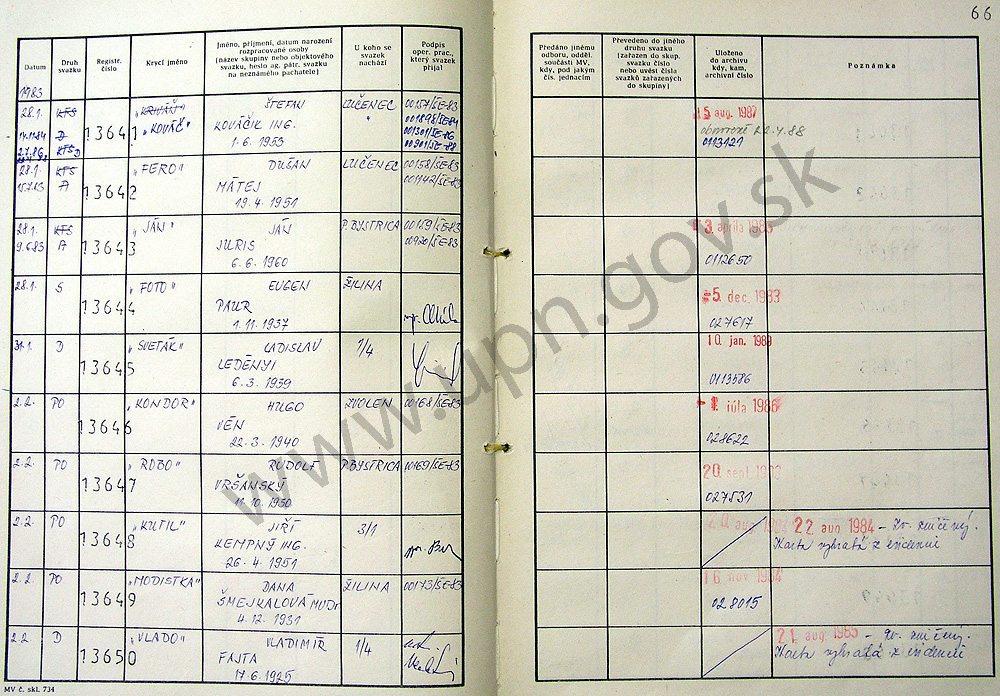 66
Datum
Druh svazku
Registr. číslo
Krycí jméno
Jméno, příjmení, datum narození
rozpracované osoby
(název skupiny nebo objektového
svazku, heslo ag. pátr. svazku
na neznámého pachatele)
U koho se
svazek
nachází
Podpis
oper. prac.,
který svazek
přijal
Předáno jinému
odboru, odděl.
součásti MV,
kdy, pod jakým
čís. jednacím
Převedeno do jiného
druhu svazku
(zařazen do skup.
svazku číslo
nebo uvést čísla
svazků zařazených
do skupiny)
Uloženo
do archivu
kdy, kam,
archivní číslo
Poznámka
1983
28.1. KTS 13641 „KRIVÁŇ" ŠTEFAN LUČENEC 00157/ŠE-83 5 aug. 1987
D „KOVÁČ" KOVÁČIK ING. 001898/ŠE-84 22.4.88
2.7.86 KTS D 1.6.1953 001301/ŠE-86 0113121
00901/ŠE-88
28.1. KTS 13642 „FERO" DUŠAN LUČENEC 00158/ŠE-83
15.7.83 A MÁTEJ 001142/ŠE-83
19.4.1951
28.1. KTS 13643 „JÁN" JÁN P.BYSTRICA 00159/ŠE-83
9.6.83 A JURIS 00920/ŠE-83 0112650
6.6.1960
28.1. S 13644 „FOTO" EUGEN ŽILINA 5. dec. 1983
PAUR 027617
1.11.1937
31.1. D 13645 „SVETÁK" LADISLAV 1/4 10. jan. 1989
LEDÉNYI 0113586
6.3.1939
2.2. PO 13646 „KONDOR" HUGO ZVOLEN 00168/ŠE-83 1. júla 1986
VÉN 028622
22.3.1940
2.2. PO 13647 „ROBO" RUDOLF P.BYSTRICA 00169/ŠE-83 20. sept.
VRŠANSKÝ 027531
11.10.1950
2.2. PO 13648 „KUTIL" JIŘÍ 3/1 22. aug. 1984 - zv. zničený.
KEMPNÝ ING. Karta vybratá z evidencií
26.4.1951
2.2. PO 13649 „MODISTKA" DANA ŽILINA 00173/ŠE-83 16. nov. 1984
ŠMEJKALOVÁ MUDr 028015
4.12.1931
2.2. D 13650 „VLADO" VLADIMÍR 1/4 21. aug. 1985 - zv. zničený.
FAJTA Karta vybratá z evidencií
17.6.1925
MV č. skl. 734
www.upn.gov.sk